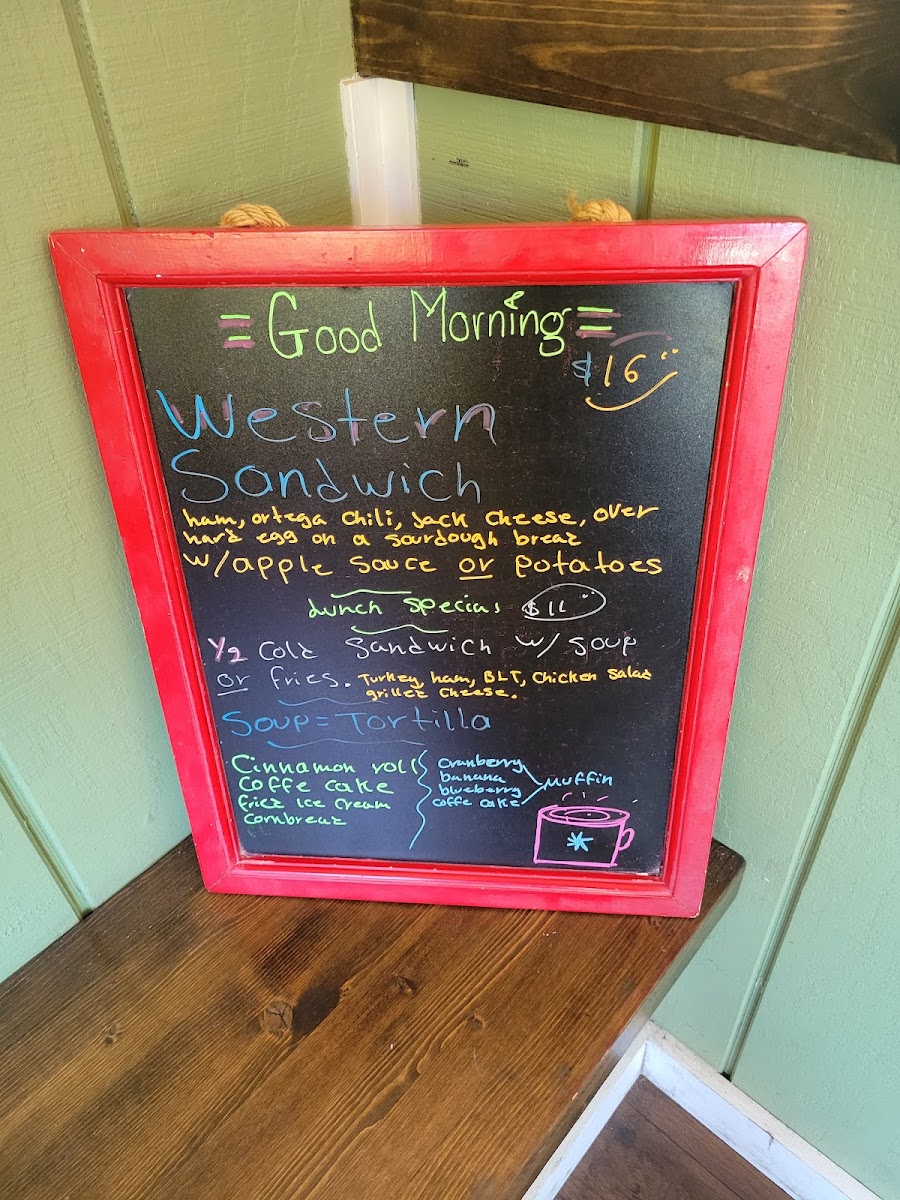 =Good Morning=
$16
Western
Sandwich
ham, ortega chili, Jack cheese, over
hard egg on a sourdough bread
w/apple sauce or potatoes
Lunch special $11
1/2 cold sandwich w/ soup
or fries. Turkey, ham, BLT, Chicken Salad
grilled cheese.
Soup = Tortilla
Cinnamon roll
Coffe cake
fried Ice cream
cornbread
Cranberry
banana
blueberry
coffe cake
Muffin